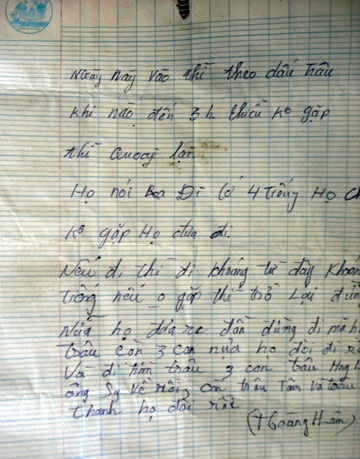 Ngày nay vào thì theo dấu trâu
khi nào đến 3h chiều ko gặp
thì quay lại.
Họ nói Ba Đi có 4 tiếng Họ
Ko gặp Họ đưa đi.
Nếu đi chỉ đi khoảng từ đây
tiếng nếu o gặp thì trở lại
Nữa họ đưa ra đồn đừng đi
trâu còn 3 con nữa họ đòi đi
Và đi tìm trâu 3 con trâu
ông Sy về rồi, con trâu Tâm Và
thanh họ đòi rồi
(Hoàng